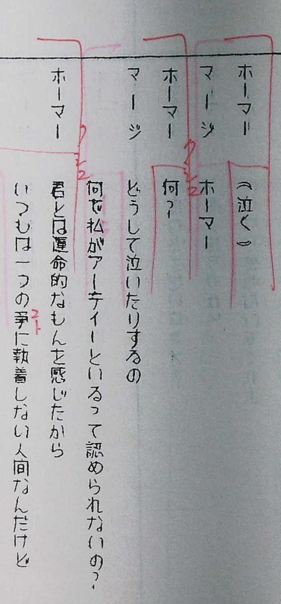 ホーマー （泣く）
マージ ホーマー
ホーマー 何？
マージ どうして泣いたりするの
私がアーティーといるって認められないの？
ホーマー 君とは運命的なもんを感じたから
いつもは一つの事に執着しない人間なんだけど
コト